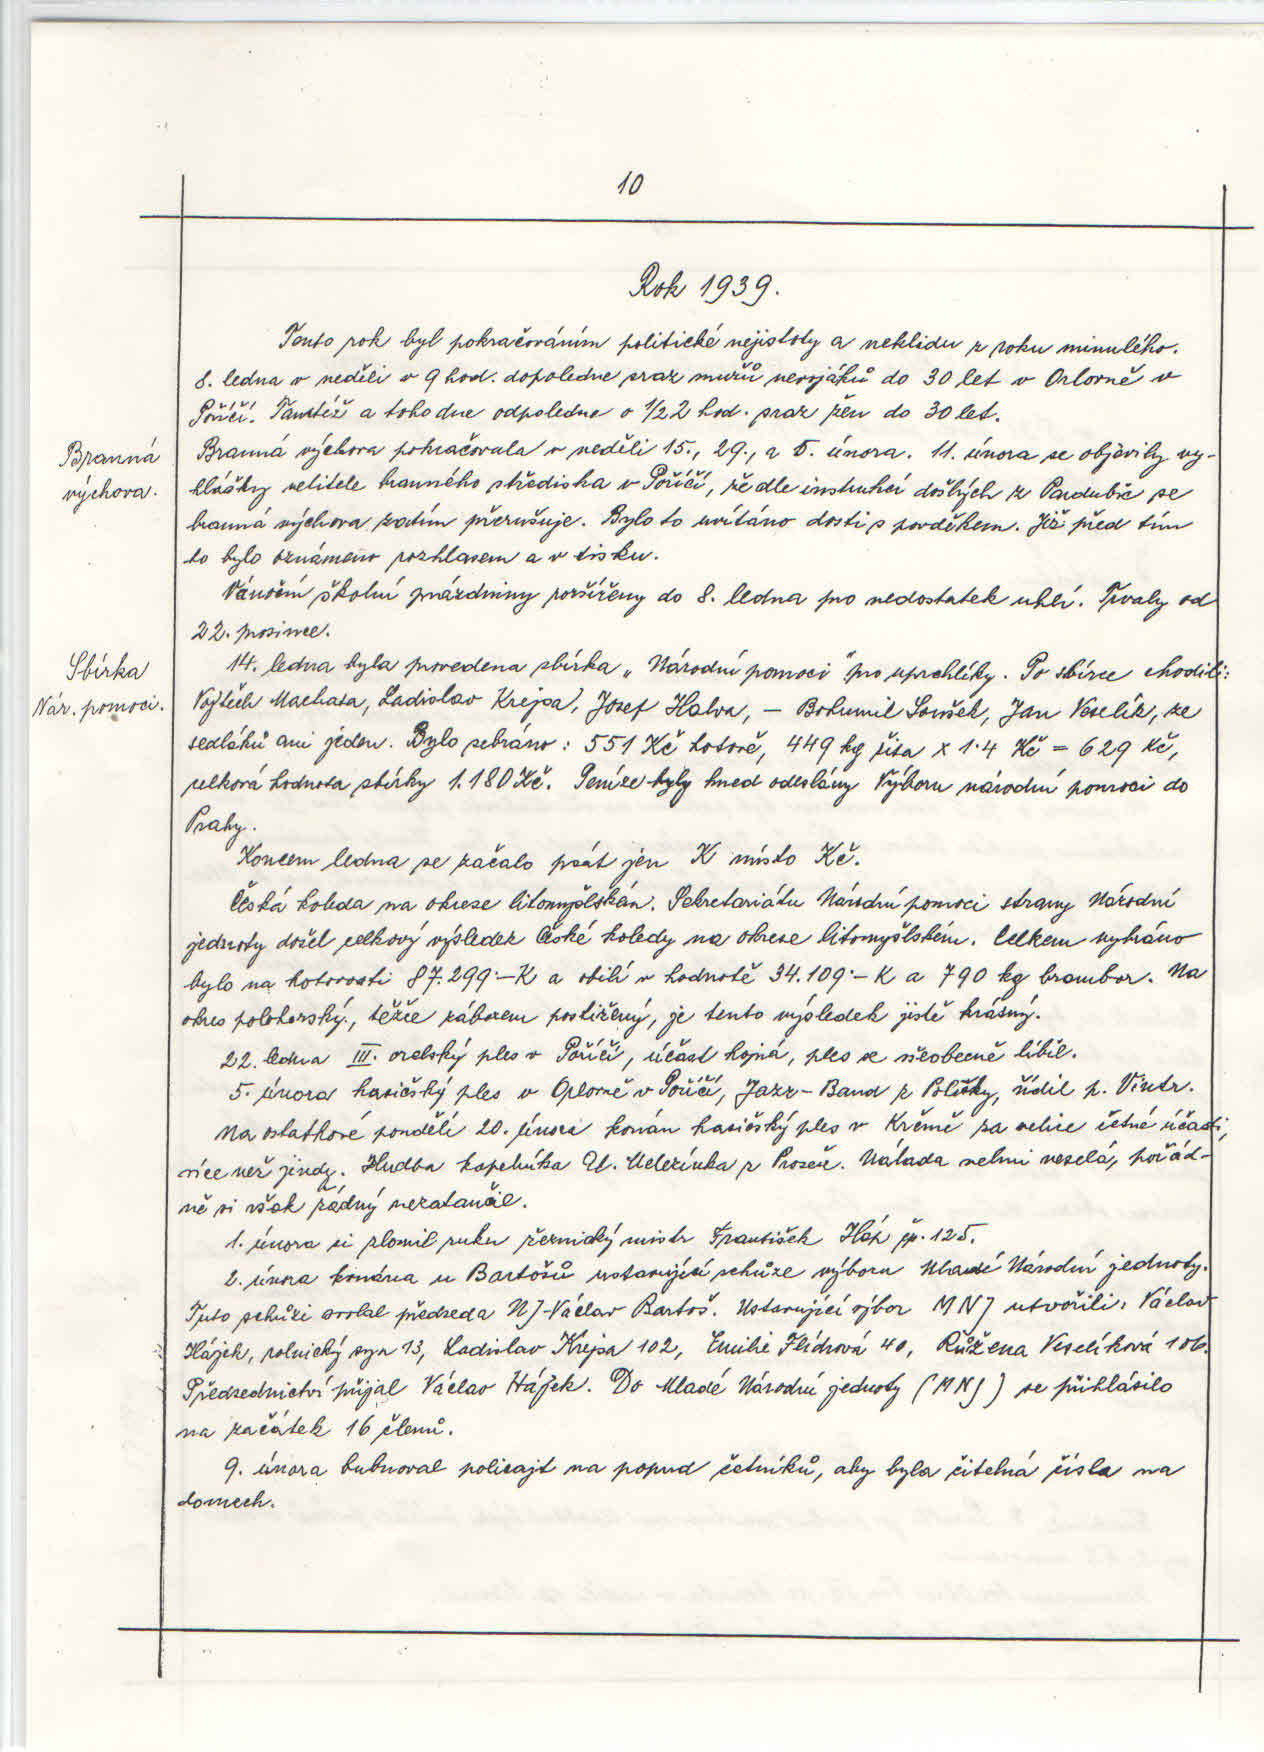 10
Rok 1939.
Tento rok byl pokračováním politické nejistoty a neklidu z roku minulého.
8. ledna v neděli v 9 hod. dopoledne sraz mužů nevojáků do 30 let v Orlovně v
Poříčí. Tamtéž a toho dne odpoledne o 1/2 2 hod. sraz žen do 30 let.
Branná
výchova.
Branná výchova pokračovala v neděli 15., 29., a 5. února. 11. února se objevily vy-
hlášky velitele branného střediska v Poříčí, že dle instrukcí došlých z Pardubic se
branná výchova zatím přerušuje. Bylo to uvítáno dosti s povděkem. Již před tím
to bylo oznámeno rozhlasem a v tisku.
Vánoční školní prázdniny rozšířeny do 8. ledna pro nedostatek uhlí. Trvaly od
22. prosince.
Sbírka
Nár. pomoci.
14. ledna byla provedena sbírka „Národní pomoci" pro uprchlíky. Po sbírce chodili:
Vojtěch Machata, Ladislav Krejsa, Josef Halva, – Bohumil Soušek, Jan Veselík, ze
sedláků ani jeden. Bylo sebráno: 551 Kč hotově, 449 kg žita x 1·4 Kč = 629 Kč,
celková hodnota sbírky 1.180 Kč. Peníze byly hned odeslány Výboru národní pomoci do
Prahy.
Koncem ledna se začalo psát jen K místo Kč.
Česká koleda na okrese litomyšlském. Sekretariátu Národní pomoci strany Národní
jednoty došel celkový výsledek České koledy na okrese litomyšlském. Celkem vybráno
bylo na hotovosti 87.299·–K a obilí v hodnotě 34.109·–K a 790 kg brambor. Na
okres polohorský, těžce záborem postižený, je tento výsledek jistě krásný.
22. ledna III. orelský ples v Poříčí, účast hojná, ples se všeobecně líbil.
5. února hasičský ples v Orlovně v Poříčí, Jazz-Band z Poličky, řídil p. Vintr.
Na ostatkové pondělí 20. února konán hasičský ples v Krčmě za velice četné účasti,
více než jindy. Hudba kapelníka U. Udezínka z Proseče. Nálada velmi veselá, pořád-
ně si však žádný nezatančil.
1. února si zlomil ruku řeznický mistr František Háp čp. 125.
2. února konána u Bartošů ustavující schůze výboru Mladé Národní jednoty.
Tuto schůzi svolal předseda NJ-Václav Bartoš. Ustavující výbor MNJ utvořili: Václav
Hájek, rolnický syn 13, Ladislav Krejsa 102, Emilie Flídrová 40, Růžena Veselíková 106.
Předsednictví přijal Václav Hájek. Do Mladé Národní jednoty (MNJ) se přihlásilo
na začátek 16 členů.
9. února bubnoval policajt na popud četníků, aby byla čitelná čísla na
domech.